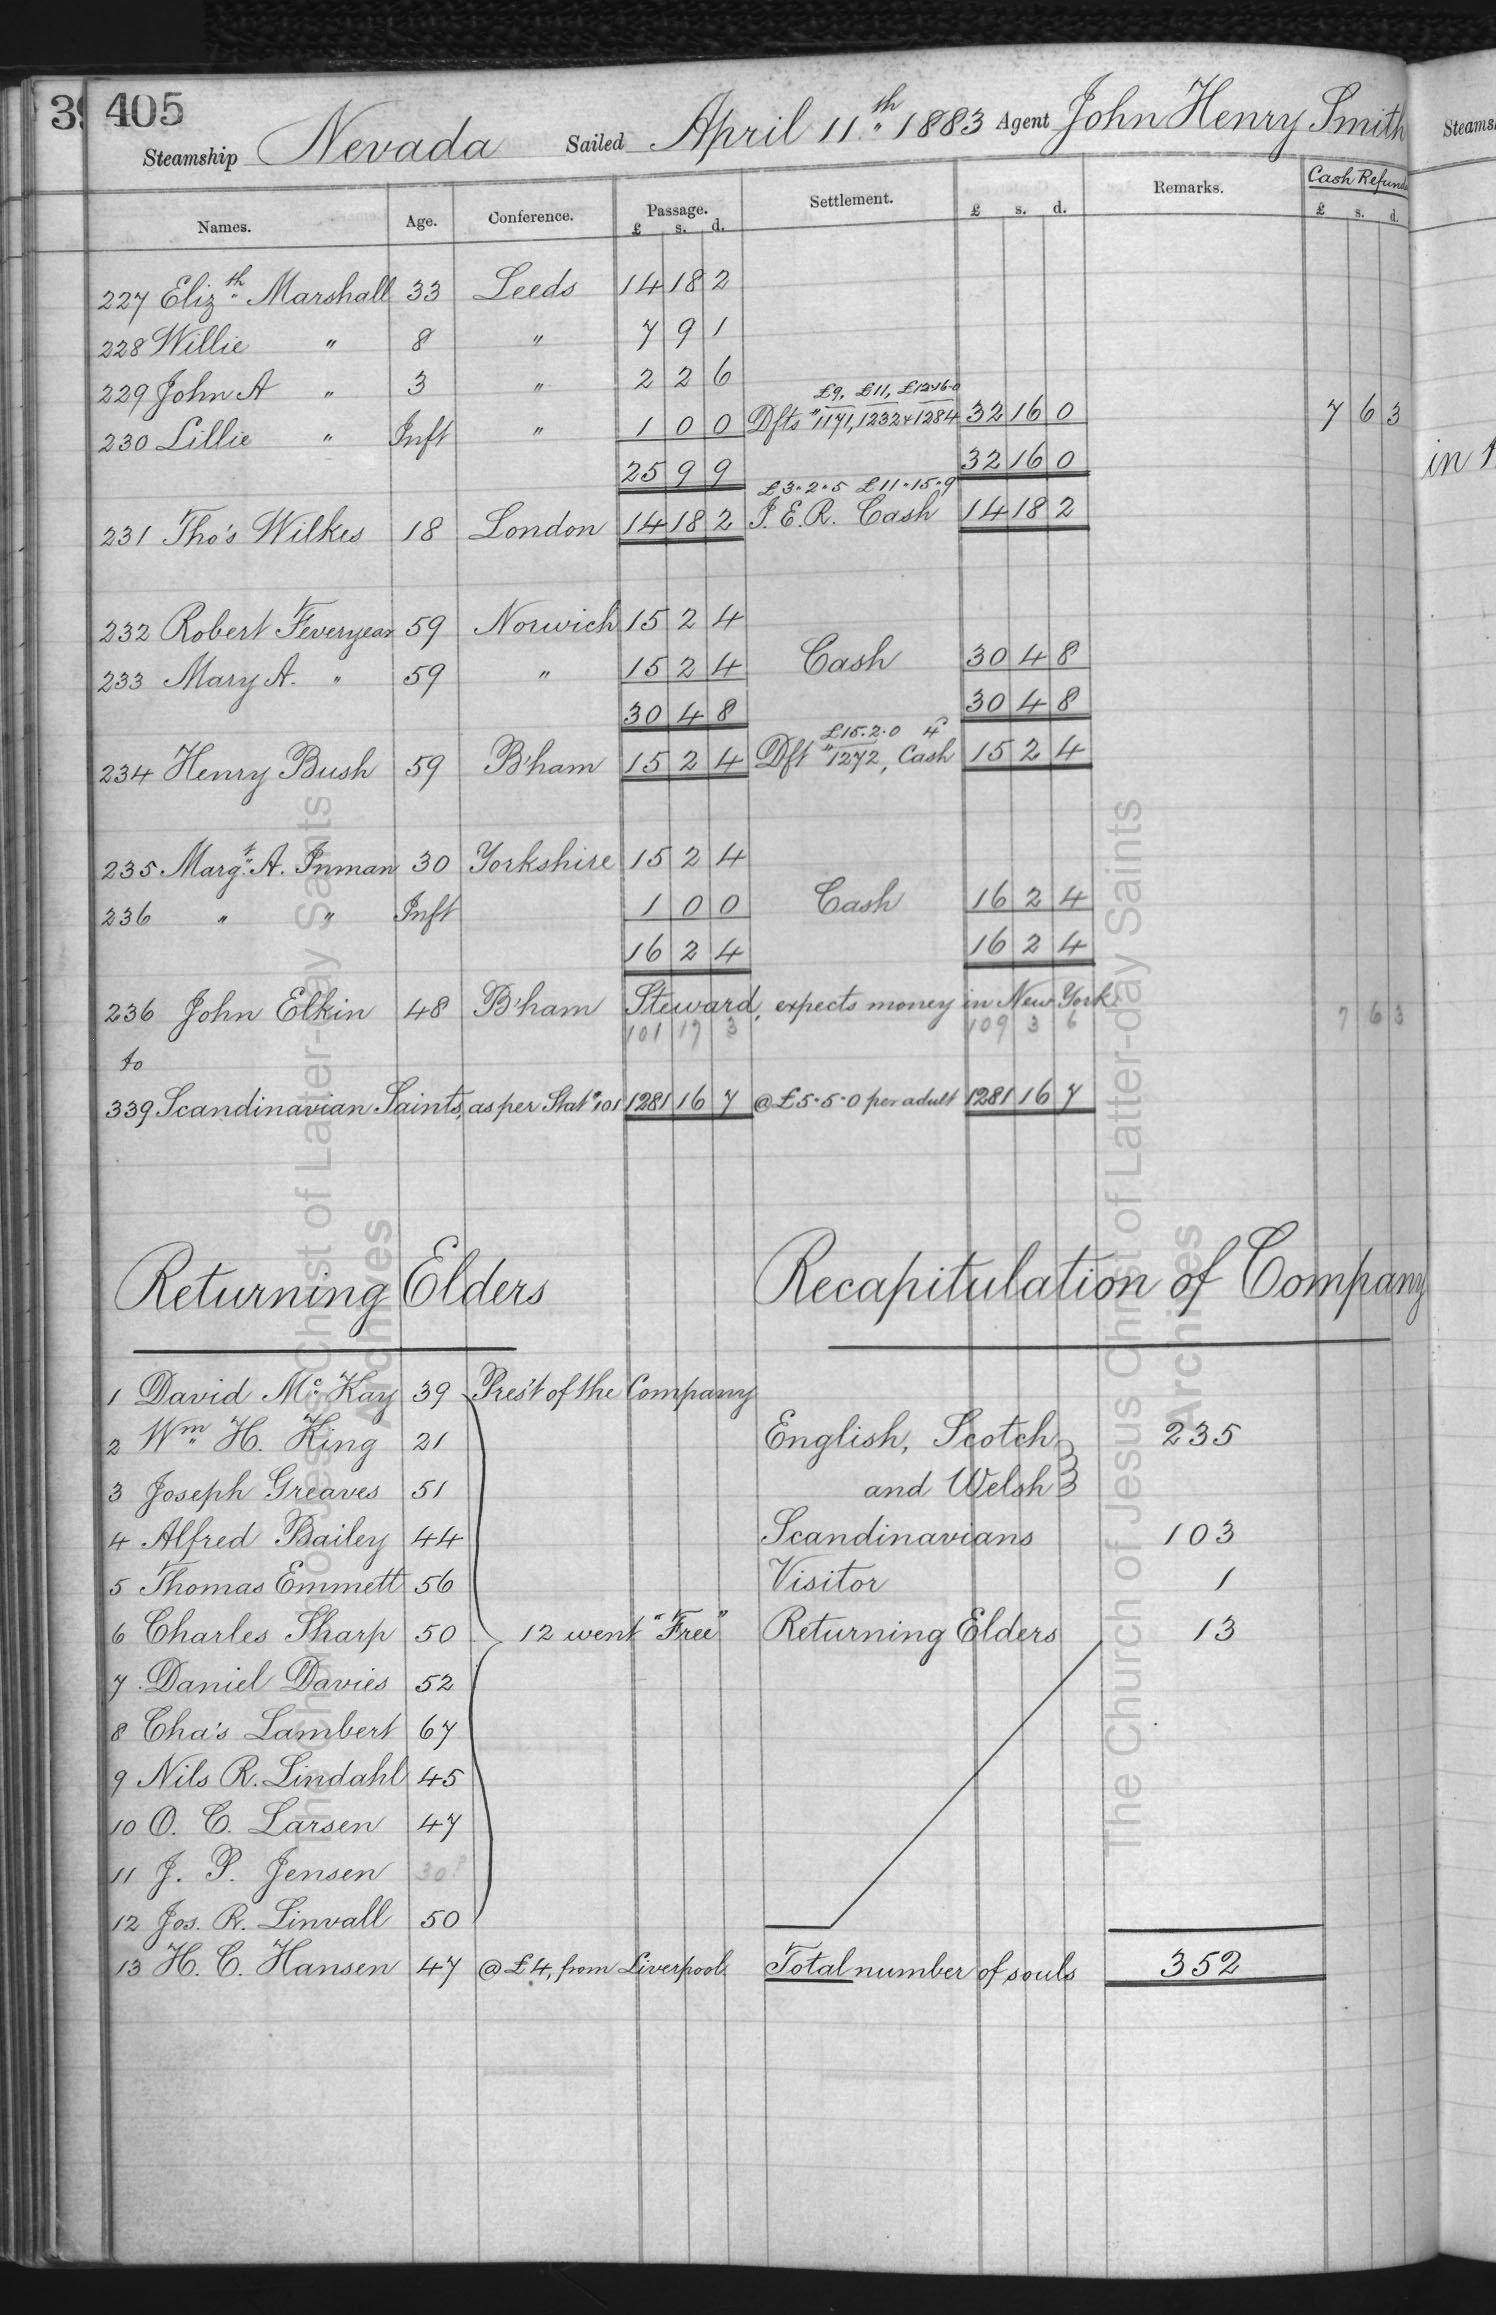 405
Steamship Nevada Sailed April 11th 1883 Agent John Henry Smith
Names. Age. Conference. Passage. Settlement. £ s. d. Remarks. Cash Refund
£ s. d. £ s. d.
227 Elizth Marshall 33 Leeds 14 18 2
228 Willie " 8 " 7 9 1
229 John A " 3 " 2 2 6
£9, £11, £12.16.0
230 Lillie " Inft " 1 0 0 Dfts "1171, 1232 & 1284 32 16 0 7 6 3
25 9 9 32 16 0
£3.2.5 £11.15.9
231 Tho's Wilkes 18 London 14 18 2 I.E.R. Cash 14 18 2
232 Robert Feveryear 59 Norwich 15 2 4
233 Mary A. " 59 " 15 2 4 Cash 30 4 8
30 4 8 30 4 8
£15.2.0 4d
234 Henry Bush 59 B'ham 15 2 4 Dft "1272, Cash 15 2 4
235 Margt A. Inman 30 Yorkshire 15 2 4
236 " " Inft 1 0 0 Cash 16 2 4
16 2 4 16 2 4
236 John Elkin 48 B'ham Steward, expects money in New York
101 17 3 109 3 6 7 6 3
to
339 Scandinavian Saints, as per Stat "101 1281 16 7 @ £5.5.0 per adult 1281 16 7
Returning Elders
1 David McKay 39 Pres't of the Company
2 Wm H. King 21
3 Joseph Greaves 51
4 Alfred Bailey 44
5 Thomas Emmett 56
6 Charles Sharp 50 12 went "Free"
7 Daniel Davies 52
8 Cha's Lambert 67
9 Nils R. Lindahl 45
10 O. C. Larsen 47
11 J. P. Jensen 30?
12 Jos. R. Linvall 50
13 H. C. Hansen 47 @ £4, from Liverpool.
Recapitulation of Company
English, Scotch
and Welsh 235
Scandinavians 103
Visitor 1
Returning Elders 13
Total number of souls 352
Steams
in
The Church of Jesus Christ of Latter-day Saints
Archives
The Church of Jesus Christ of Latter-day Saints
Archives